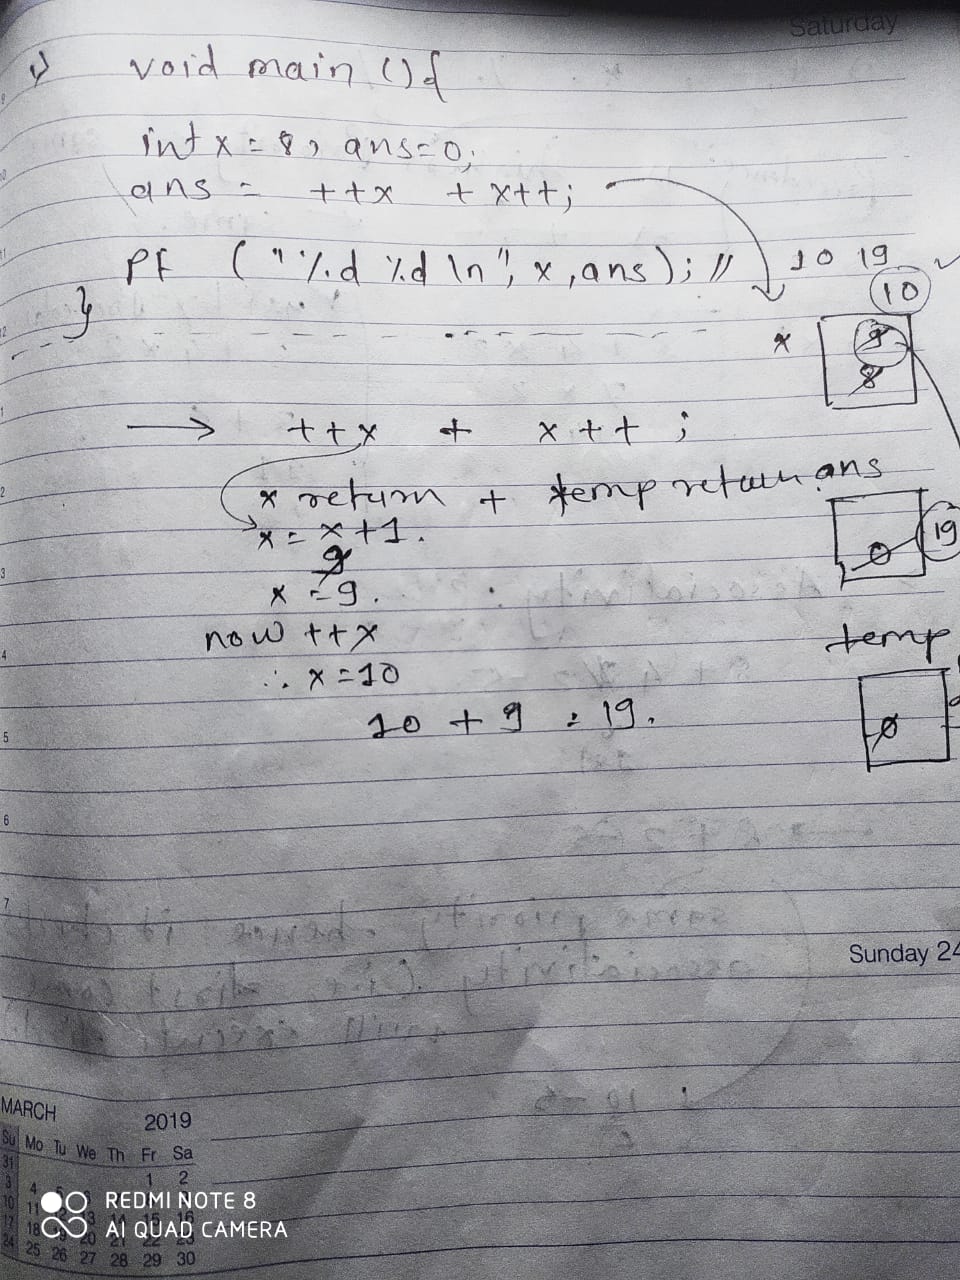 Saturday
void main () {
int x = 8, ans=0;
ans = ++x + x++;
PF ("%d %d \n", x, ans); // 10 19
}
10
x 9
8
→ ++x + x++ ;
x return + temp return ans
x = x+1.
19
0
9
x = 9.
now ++x
temp
∴ x = 10
10 + 9 = 19.
0
Sunday 24
MARCH 2019
Su Mo Tu We Th Fr Sa
31 1 2
3 4
10 11 13 14 15 16
17 18 20 21 22 23
24 25 26 27 28 29 30
REDMI NOTE 8
AI QUAD CAMERA